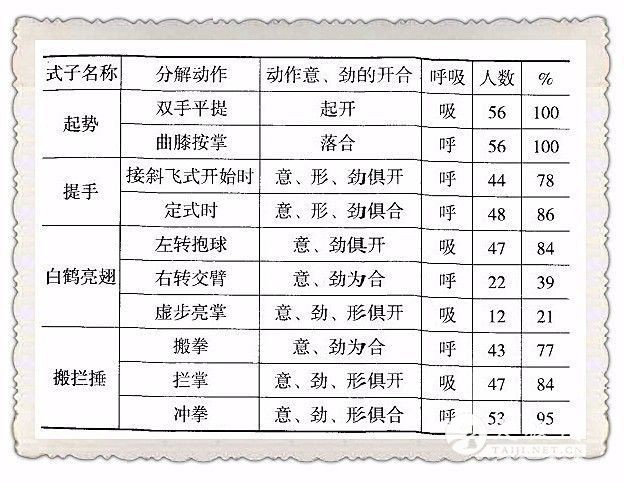 式子名称 分解动作 动作意、劲的开合 呼吸 人数 %
起势 双手平提 起开 吸 56 100
曲膝按掌 落合 呼 56 100
提手 接斜飞式开始时 意、形、劲俱开 呼 44 78
定式时 意、形、劲俱合 呼 48 86
白鹤亮翅 左转抱球 意、劲俱开 吸 47 84
右转交臂 意、劲为合 呼 22 39
虚步亮掌 意、劲、形俱开 吸 12 21
搬拦捶 搬拳 意、劲为合 呼 43 77
拦掌 意、劲、形俱开 吸 47 84
冲拳 意、劲、形俱合 呼 53 95
TAIJI.NET.CN